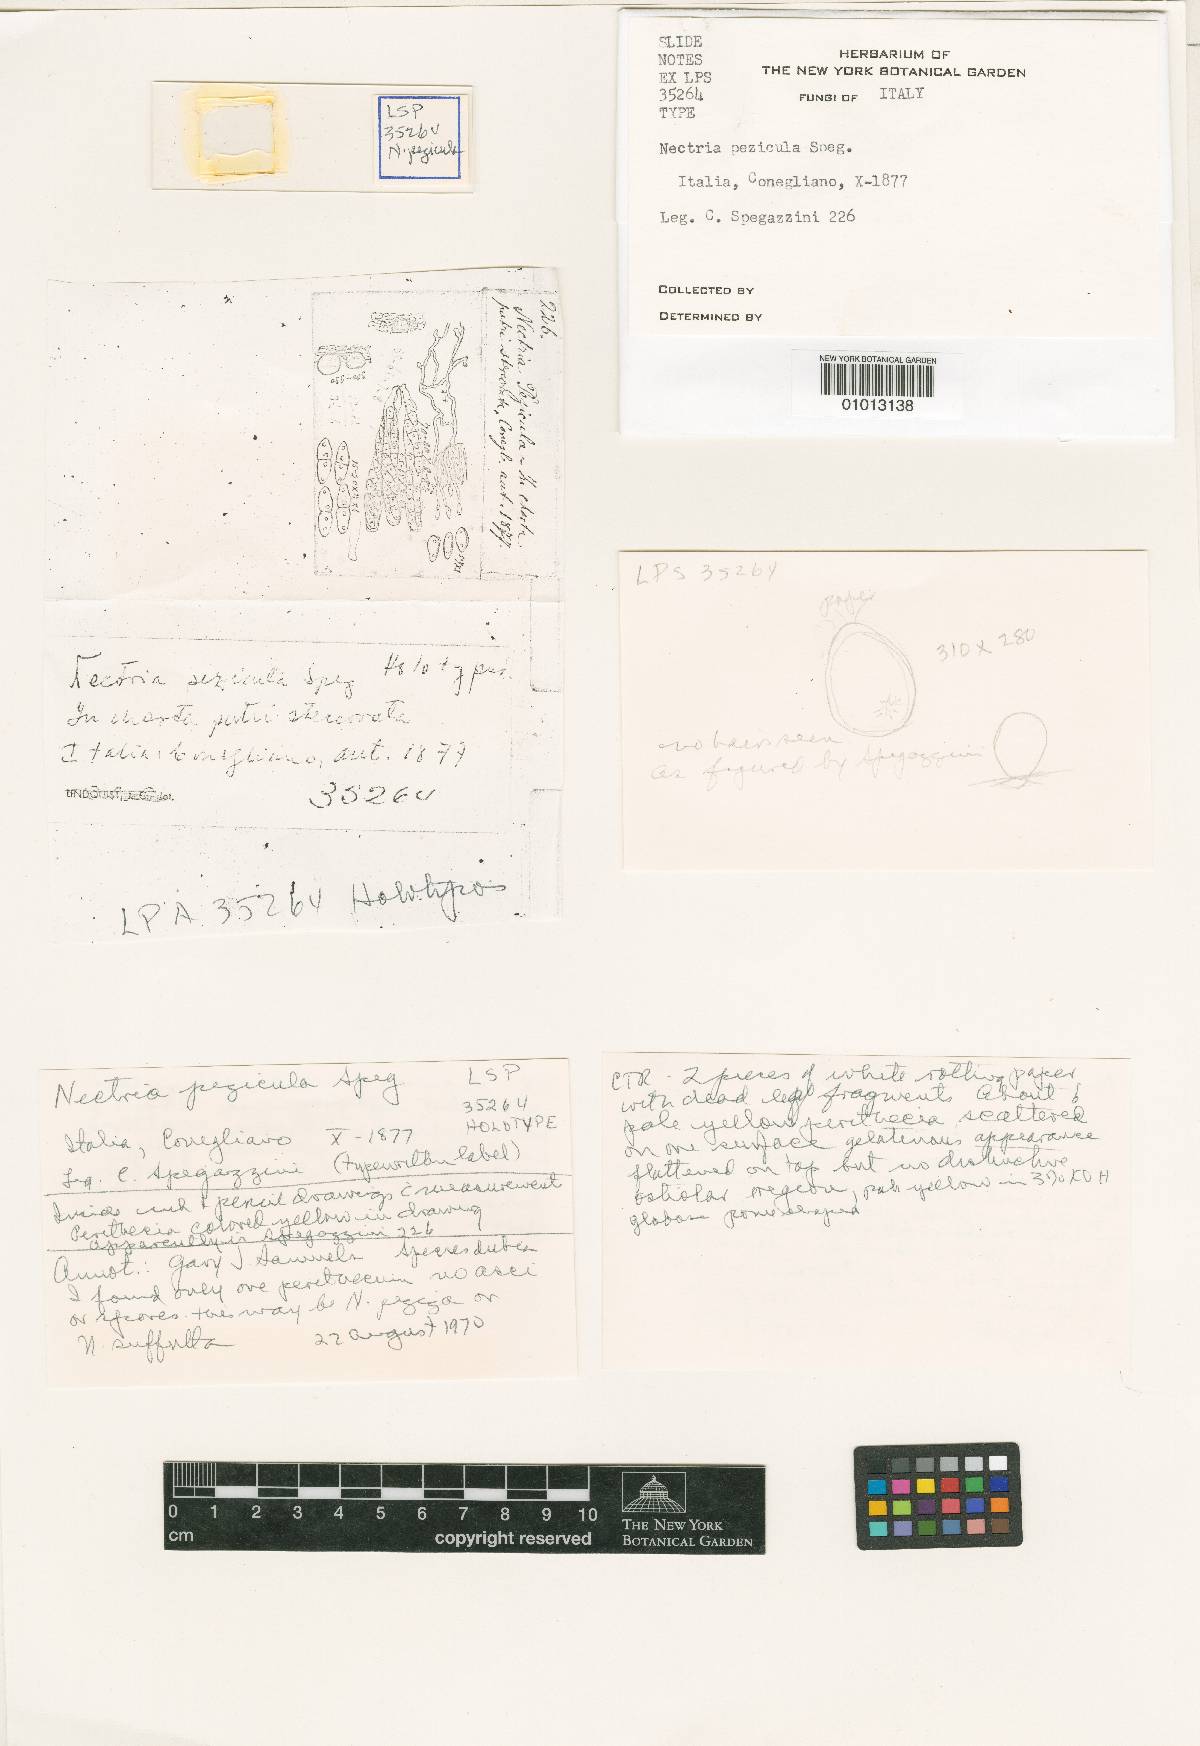 SLIDE
NOTES
EX LPS
35264
TYPE
HERBARIUM OF
THE NEW YORK BOTANICAL GARDEN
FUNGI OF ITALY
Nectria pezicula Speg.
Italia, Conegliano, X-1877
Leg. C. Spegazzini 226
COLLECTED BY
DETERMINED BY
NEW YORK BOTANICAL GARDEN
01013138
LSP
35264
N. pezicula
226.
Nectria Pezicula
putri stercorata, Conegl. aut. 1877.
Nectria pezicula Speg Holotypus.
In charta putri stercorata
Italia: Conegliano, aut. 1877
35264
LPA 35264 Holotypos
LPS 35264
paper
310 x 280
no hairs seen
as figured by Spegazzini
Nectria pezicula Speg
LSP
35264
HOLOTYPE
Italia, Conegliano X-1877
Leg. C. Spegazzini (typewritten label)
Inside ink & pencil drawings c measurements
Perithecia colored yellow in drawing
apparently is Spegazzini 226
Annot.: Gary J Samuels Species dubia
I found only one perithecium no asci
or spores. this may be N. peziza or
N. suffulta 27 August 1970
CTR - 2 pieces of white rotting paper
with dead leaf fragments About 6
pale yellow perithecia scattered
on one surface gelatinous appearance
flattened on top but no distinctive
ostiolar region, pale yellow in 3% KOH
globose
0 1 2 3 4 5 6 7 8 9 10
cm
copyright reserved
THE NEW YORK
BOTANICAL GARDEN